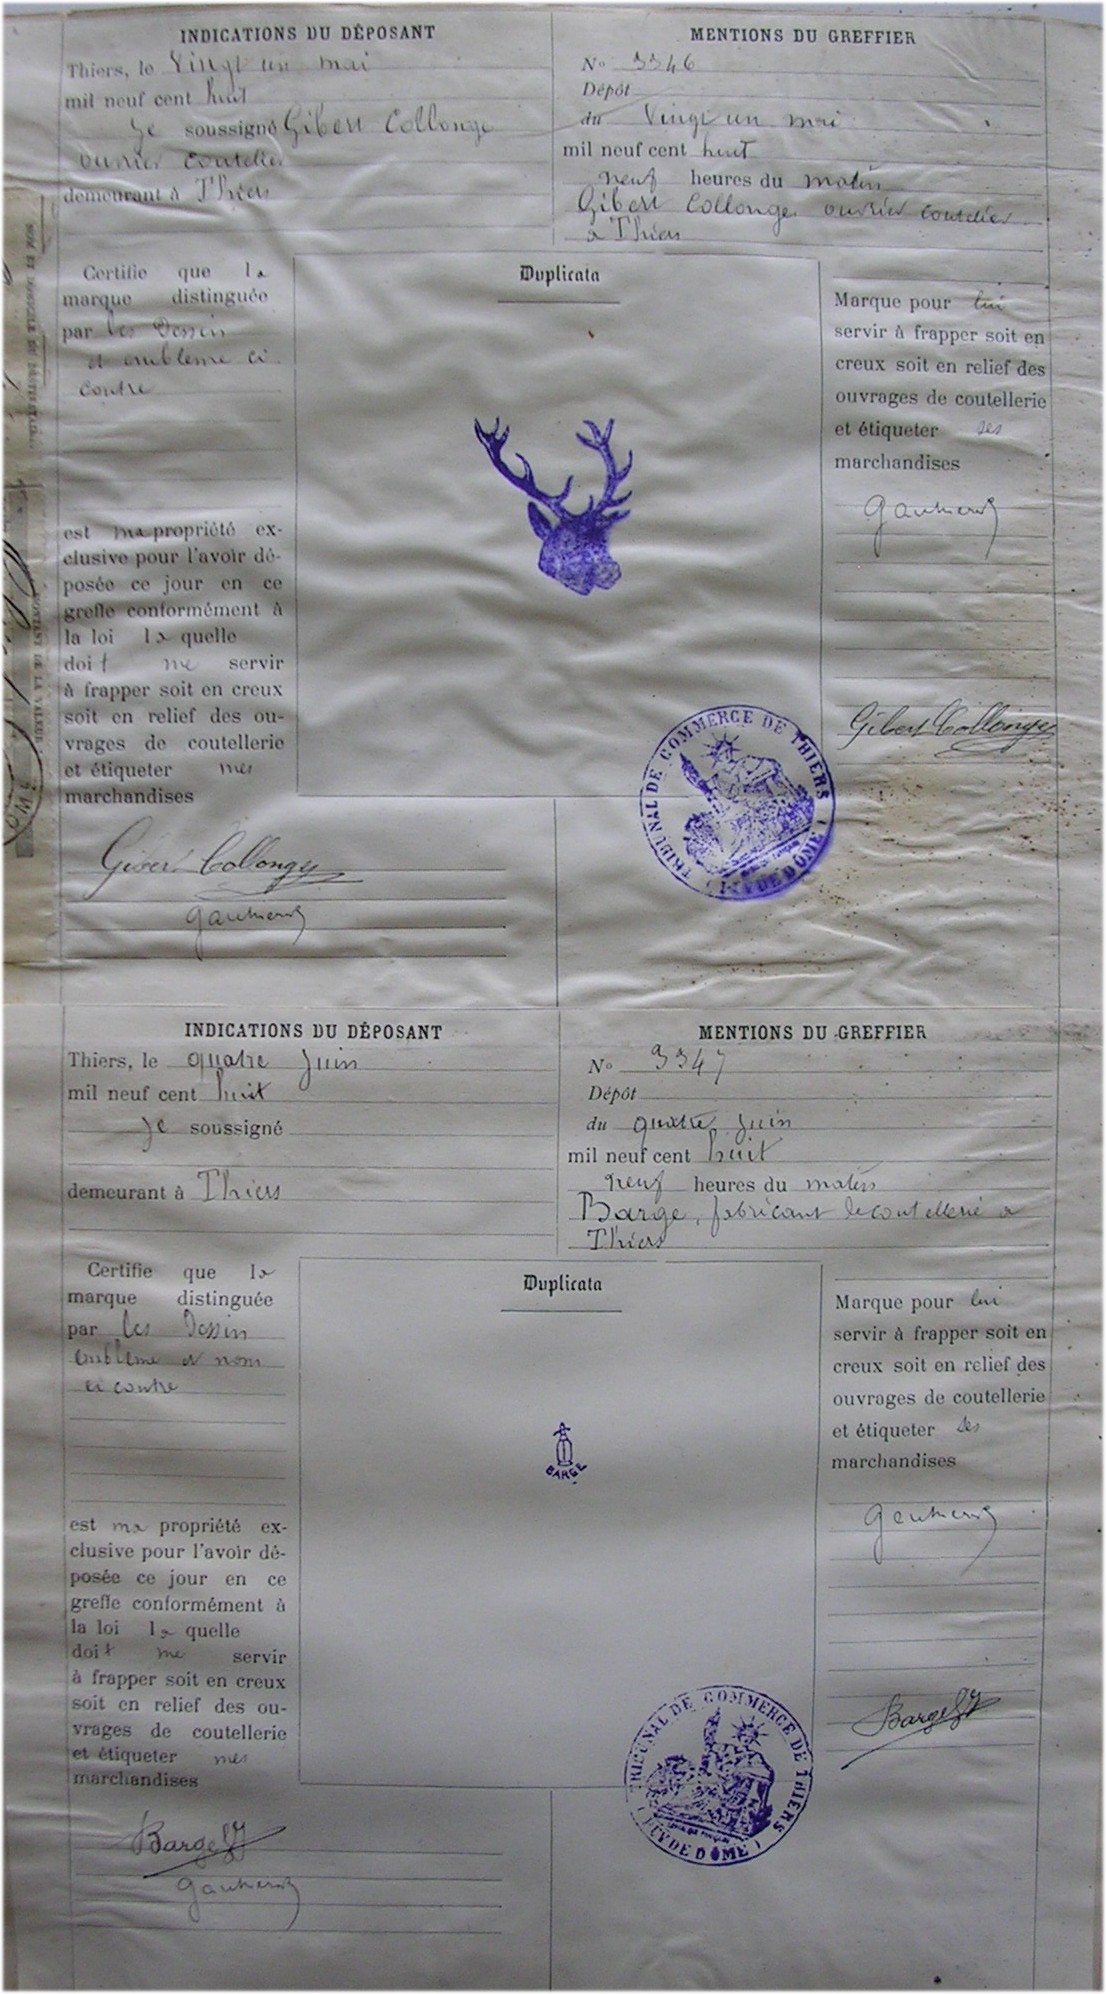 INDICATIONS DU DÉPOSANT
Thiers, le Vingt un mai
mil neuf cent huit
Je soussigné Gibert Collonge
ouvrier coutelier
demeurant à Thiers
MENTIONS DU GREFFIER
No 3346
Dépôt
du Vingt un mai
mil neuf cent huit
neuf heures du matin
Gibert Collonge, ouvrier coutelier
a Thiers
Certifie que la
marque distinguée
par les Dessin
et embleme ci
contre
est ma propriété ex-
clusive pour l'avoir dé-
posée ce jour en ce
greffe conformément à
la loi la quelle
doit me servir
à frapper soit en creux
soit en relief des ou-
vrages de coutellerie
et étiqueter mes
marchandises
Gibert Collonge
Duplicata
TRIBUNAL DE COMMERCE DE THIERS
(PUY DE DÔME)
Marque pour lui
servir à frapper soit en
creux soit en relief des
ouvrages de coutellerie
et étiqueter ses
marchandises
Gibert Collonge
INDICATIONS DU DÉPOSANT
Thiers, le quatre Juin
mil neuf cent huit
Je soussigné
demeurant à Thiers
MENTIONS DU GREFFIER
No 3347
Dépôt
du quatre Juin
mil neuf cent huit
neuf heures du matin
Barge, fabricant de coutellerie a
Thiers
Certifie que la
marque distinguée
par les Dessin
embleme et nom
ci contre
est ma propriété ex-
clusive pour l'avoir dé-
posée ce jour en ce
greffe conformément à
la loi la quelle
doit me servir
à frapper soit en creux
soit en relief des ou-
vrages de coutellerie
et étiqueter mes
marchandises
Barge
Duplicata
BARGE
TRIBUNAL DE COMMERCE DE THIERS
(PUY DE DÔME)
Marque pour lui
servir à frapper soit en
creux soit en relief des
ouvrages de coutellerie
et étiqueter ses
marchandises
Barge